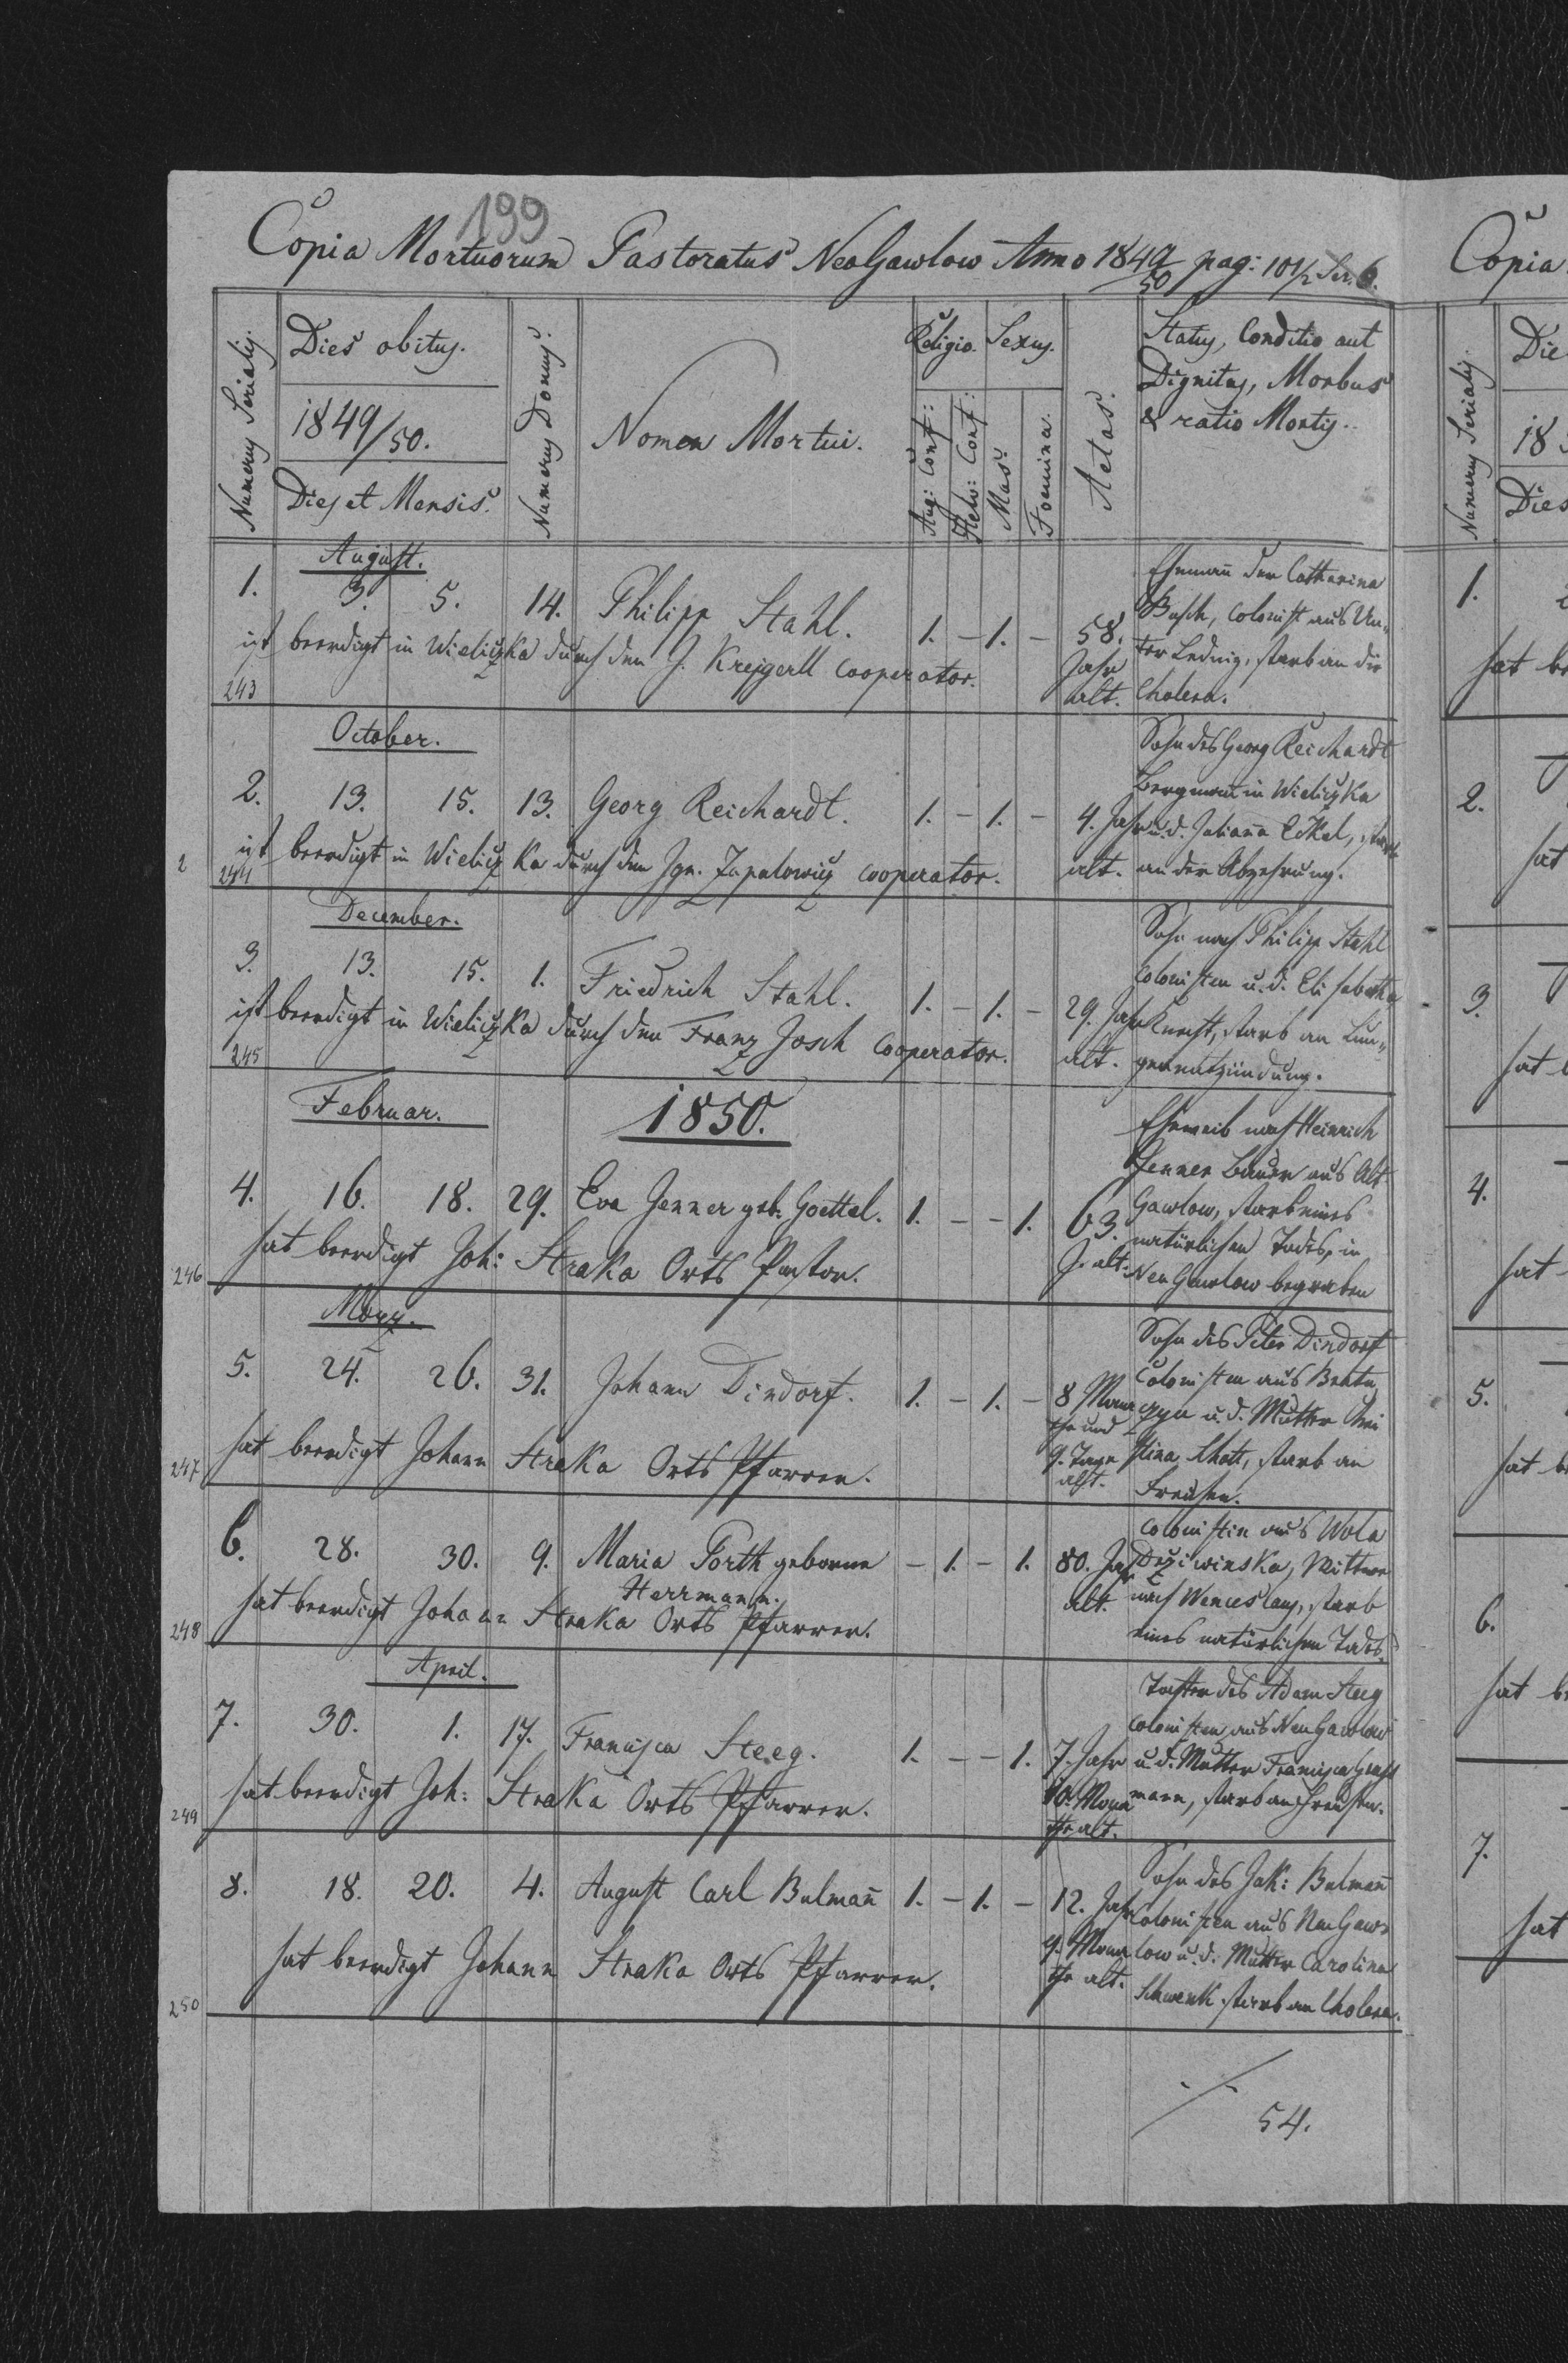 199
Copia Mortuorum Pastoratus NeaGawlow Anno 1849/50 pag: 101/2 Ser. 6.
Numerus Serialis.
Dies obitus.
1849/50.
Dies et Mensis.
Numerus Domus.
Nomen Mortui.
Religio.
Aug: Conf:
Helv: Conf:
Sexus.
Mas.
Foemina.
Aetas.
Status, Conditio aut
Dignitas, Morbus
& ratio Mortis.
August.
1. 3. 5. 14. Philipp Stahl. 1. – 1. – 58. Jahr alt.
Ehemann der Catharina
Busch, Colonist aus Un-
ter Lednig, starb an der
Cholera.
ist beerdigt in Wieliczka durch den J. Cooperator.
243
October.
2. 13. 15. 13. Georg Reichardt. 1. – 1. – 4. Jahr alt.
Sohn des Georg Reichardt
Bergmann in Wieliczka
u. d. Juliana Eckel, starb
an der Abzehrung.
ist beerdigt in Wieliczka durch den Ign. Cooperator.
244
December.
3. 13. 15. 1. Friedrich Stahl. 1. – 1. – 29. Jahr alt.
Sohn nach Philipp Stahl
Colonisten u. d. Elisabetha
Knecht, starb an Lun-
genentzündung.
ist beerdigt in Wieliczka durch den Franz Josch Cooperator.
245
Februar. 1850.
4. 16. 18. 29. Eva Jenner geb. Goettel. 1. – – 1. 63. J. alt.
Eheweib nach Heinrich
Jenner Bauer aus Alt
Gawlow, starb eines
natürlichen Todes, in
NeuGawlow begraben
hat beerdigt Joh: Straka Orts Pastor.
246
März.
5. 24. 26. 31. Johann Dindorf. 1. – 1. – 8 Mona
the und
9. Tage
alt.
Sohn des Peter Dindorf
Colonisten aus
u. d. Mutter
starb an
Freusen.
hat beerdigt Johann Straka Orts Pfarrer.
247
6. 28. 30. 9. Maria Porth geborene
Herrmann. – 1. – 1. 80. Jahr alt.
Colonistin aus Wola
Wittwe
nach Wenceslaus, starb
eines natürlichen Todes.
hat beerdigt Johann Straka Orts Pfarrer.
248
April.
7. 30. 1. 17. Francisca Steeg. 1. – – 1. 7. Jahr
10. Mona
the alt.
Tochter des Adam Steeg
Colonisten aus NeuGawlow
u. d. Mutter Francisca
mann, starb an Freusen.
hat beerdigt Joh: Straka Orts Pfarrer.
249
8. 18. 20. 4. August Carl Bulmañ 1. – 1. – 12. Jahr
9. Mona
the alt.
Sohn des Jak: Bulmañ
Colonisten aus NeuGaw-
low u. d. Mutter Carolina
Schwenk starb an Cholera.
hat beerdigt Johann Straka Orts Pfarrer.
250
54.
Copia
Numerus Serialis.
Die
18
Dies
1.
hat be
2.
hat
3.
hat
4.
hat
5.
hat b
6.
hat b
7.
hat